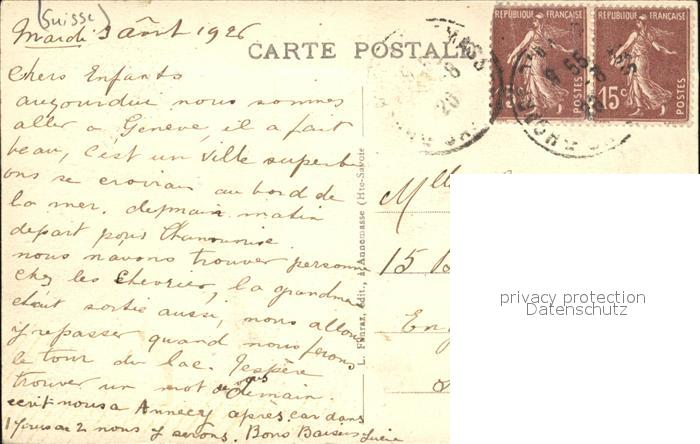 (Suisse)
Mardi 3 Août 1926
CARTE POSTALE
RÉPUBLIQUE FRANÇAISE
RÉPUBLIQUE FRANÇAISE
15c POSTES
15c POSTES
Chers Enfants
aujourdui nous sommes
aller a Genève, il a fait
beau, c'est un ville superbe
ons se croirai au bord de
la mer. demain matin
depart pour
nous navons trouver personne
chez les Chevrier, la grandmere
etait sortie aussi, nous allons
y repasser quand nous ferons
le tour du lac. J'espère
trouver un mot de vous demain.
ecrit nous a Annecy après, car dans
1 jours ou 2 nous y serons. Bons Baisers Lucie
L. Fauraz, édit., à Annemasse (Hte-Savoie)
Mlle
15
En
privacy protection
Datenschutz